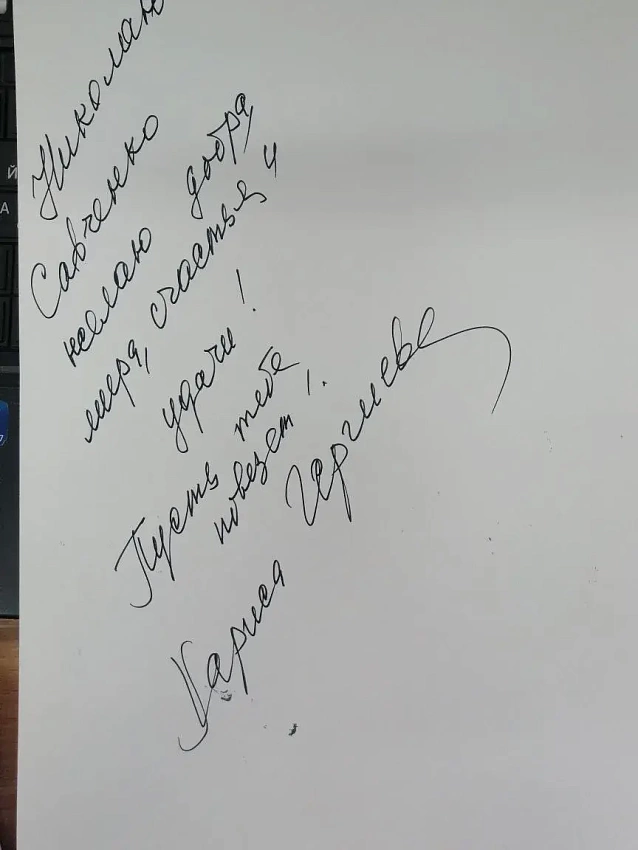 Николаю
Савченко
желаю добра,
мира, счастья и
удачи!
Пусть тебе
повезет!.
Лариса Гергиева
Й
А